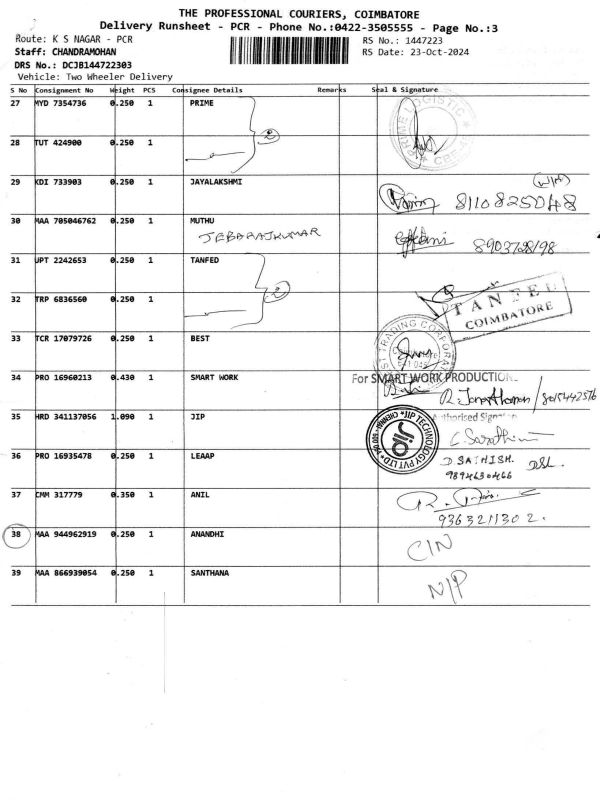 THE PROFESSIONAL COURIERS, COIMBATORE
Delivery Runsheet - PCR - Phone No.:0422-3505555 - Page No.:3
Route: K S NAGAR - PCR
RS No.: 1447223
Staff: CHANDRAMOHAN
RS Date: 23-Oct-2024
DRS No.: DCJB144722303
Vehicle: Two Wheeler Delivery
S No Consignment No Weight PCS Consignee Details Remarks Seal & Signature
27 MYD 7354736 0.250 1 PRIME
2
28 TUT 424900 0.250 1
29 KDI 733903 0.250 1 JAYALAKSHMI
8110825048
30 MAA 705046762 0.250 1 MUTHU
JEBARAJKUMAR
8903728198
31 JPT 2242653 0.250 1 TANFED
2
TANFED
COIMBATORE
32 TRP 6836560 0.250 1
33 TCR 17079726 0.250 1 BEST
34 PRO 16960213 0.430 1 SMART WORK
For SMART WORK PRODUCTION
35 HRD 341137056 1.090 1 JIP
Authorised Signat
JIP TECHNOLOGY PVT LTD
jip
36 PRO 16935478 0.250 1 LEAAP
D SATHISH.
9894630466
37 CMM 317779 0.350 1 ANIL
9363211302.
38 MAA 944962919 0.250 1 ANANDHI
C/N
39 MAA 866939054 0.250 1 SANTHANA
N/P